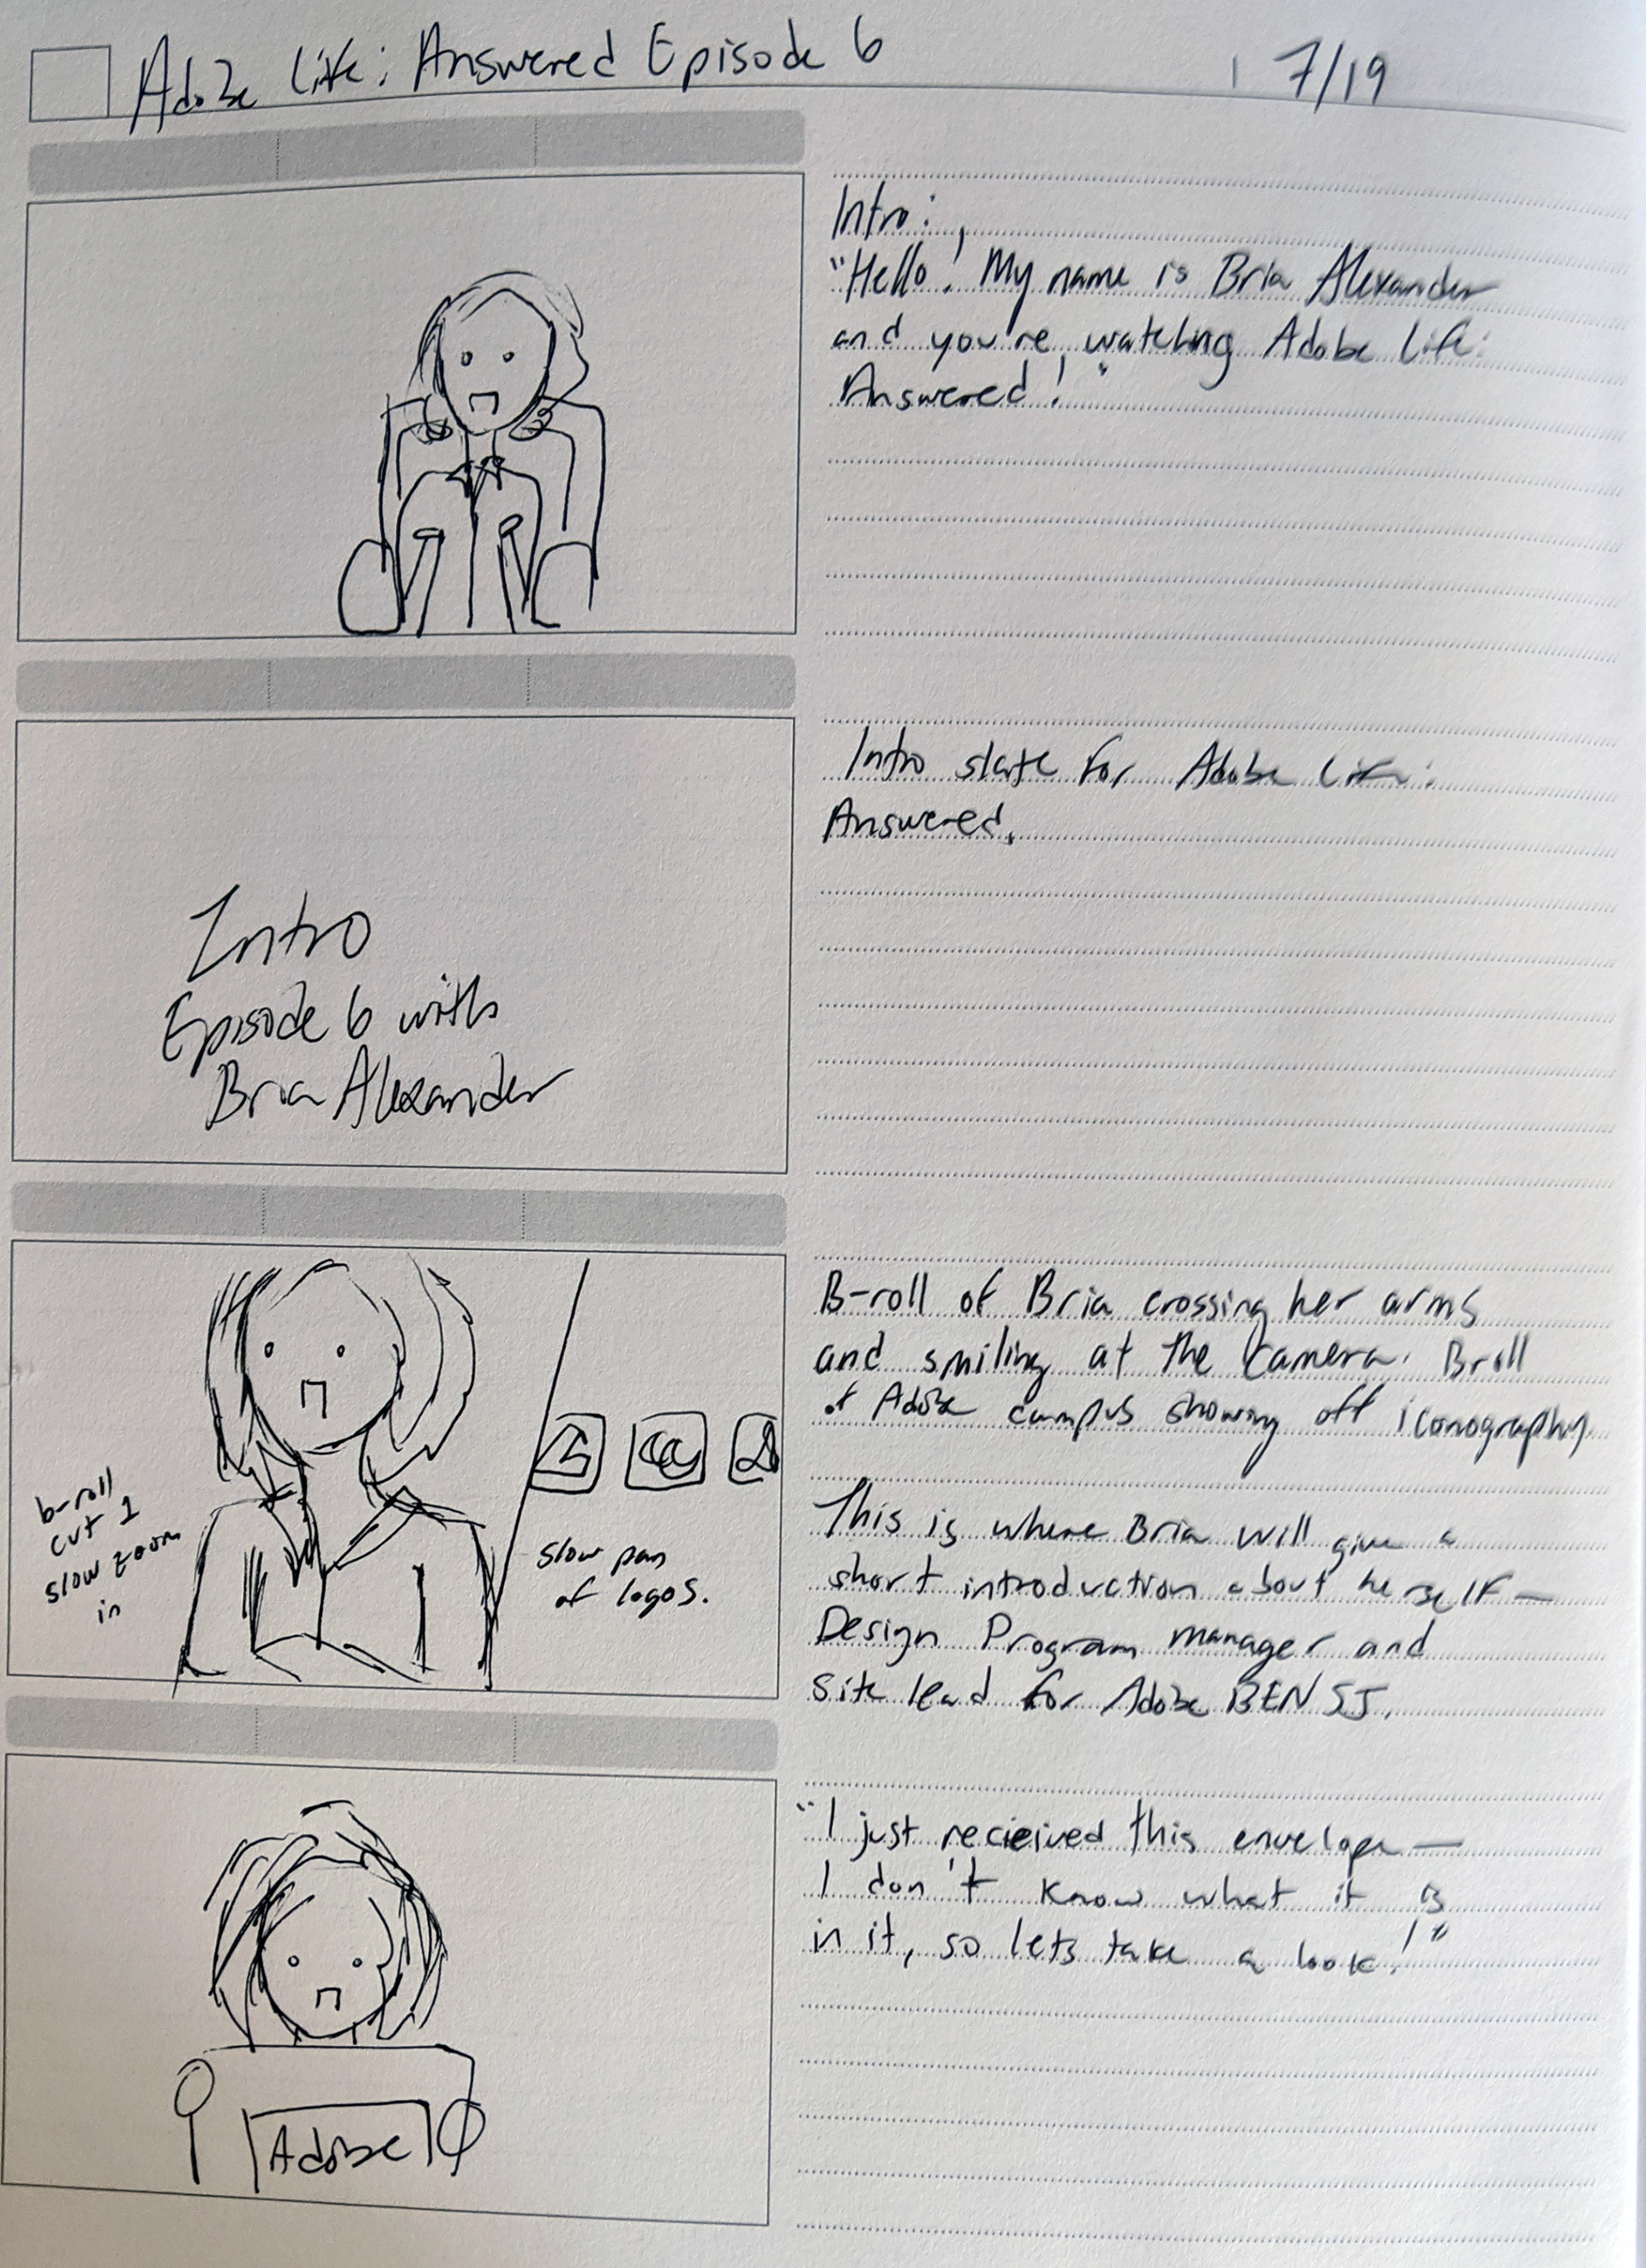 Adobe Life: Answered Episode 6
7/19
Intro:
"Hello! My name is Bria Alexander
and you're watching Adobe Life:
Answered!"
Intro
Episode 6 with
Bria Alexander
Intro slate for Adobe Life:
Answered.
b-roll
cut 1
slow zoom
in
slow pan
of logos.
B-roll of Bria crossing her arms
and smiling at the camera. Broll
of Adobe campus showing off iconography
This is where Bria will give a
short introduction about herself—
Design Program manager and
Site lead for Adobe BEN SJ.
Adobe
"I just recieived this envelope—
I don't know what it is
in it, so lets take a look!"